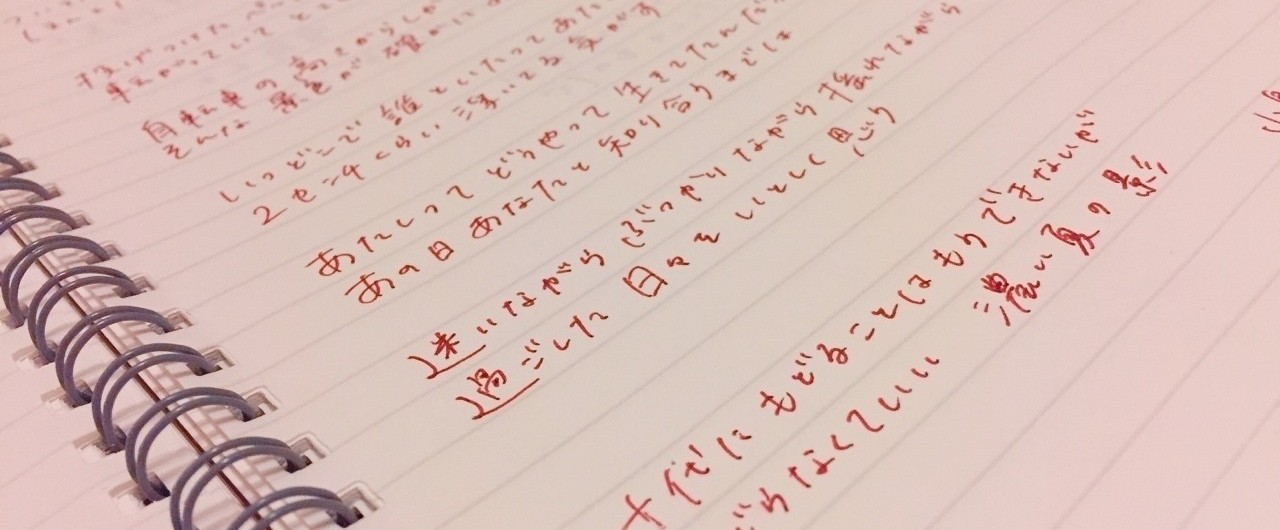 自転車の高さからしか
そんな景色が確かに
いつどこで誰といたってあた
2センチくらい浮いてる気がす
あたしってどうやって生きてたんだ
あの日あなたと知り合うまでは
迷いながら ぶつかりながら 揺れながら
過ごした日々をいとしく思う
十代にもどることはもうできないが
どらなくていい 濃い夏の影